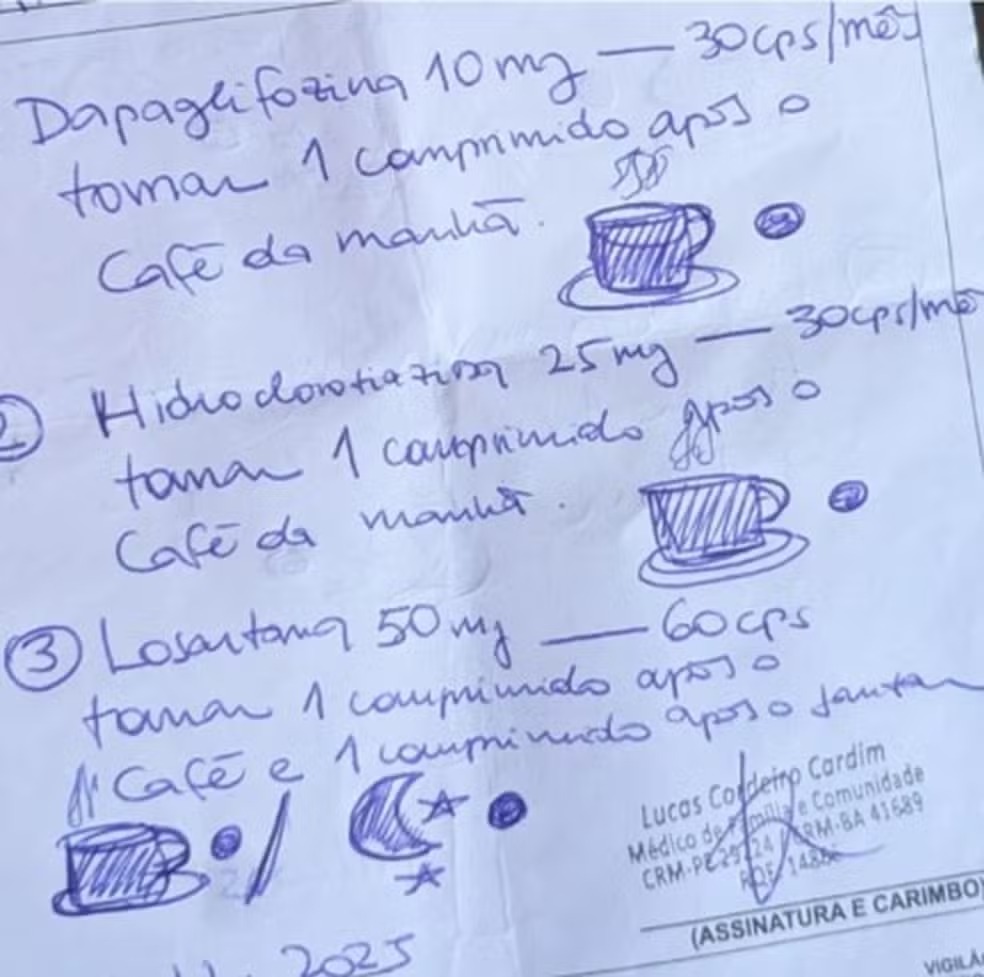 Dapaglifozina 10mg — 30cps/mês
tomar 1 comprimido após o
Café da manhã.
2 Hidroclorotiazida 25mg — 30cps/mê
tomar 1 comprimido após o
Café da manhã.
3 Losartana 50mg — 60cps
tomar 1 comprimido após o
Café e 1 comprimido após o jantar
Lucas Cordeiro Cardim
Médico de Família e Comunidade
CRM-PE CRM-BA 41689
RQE
(ASSINATURA E CARIMBO)
2025
VIGILÂ